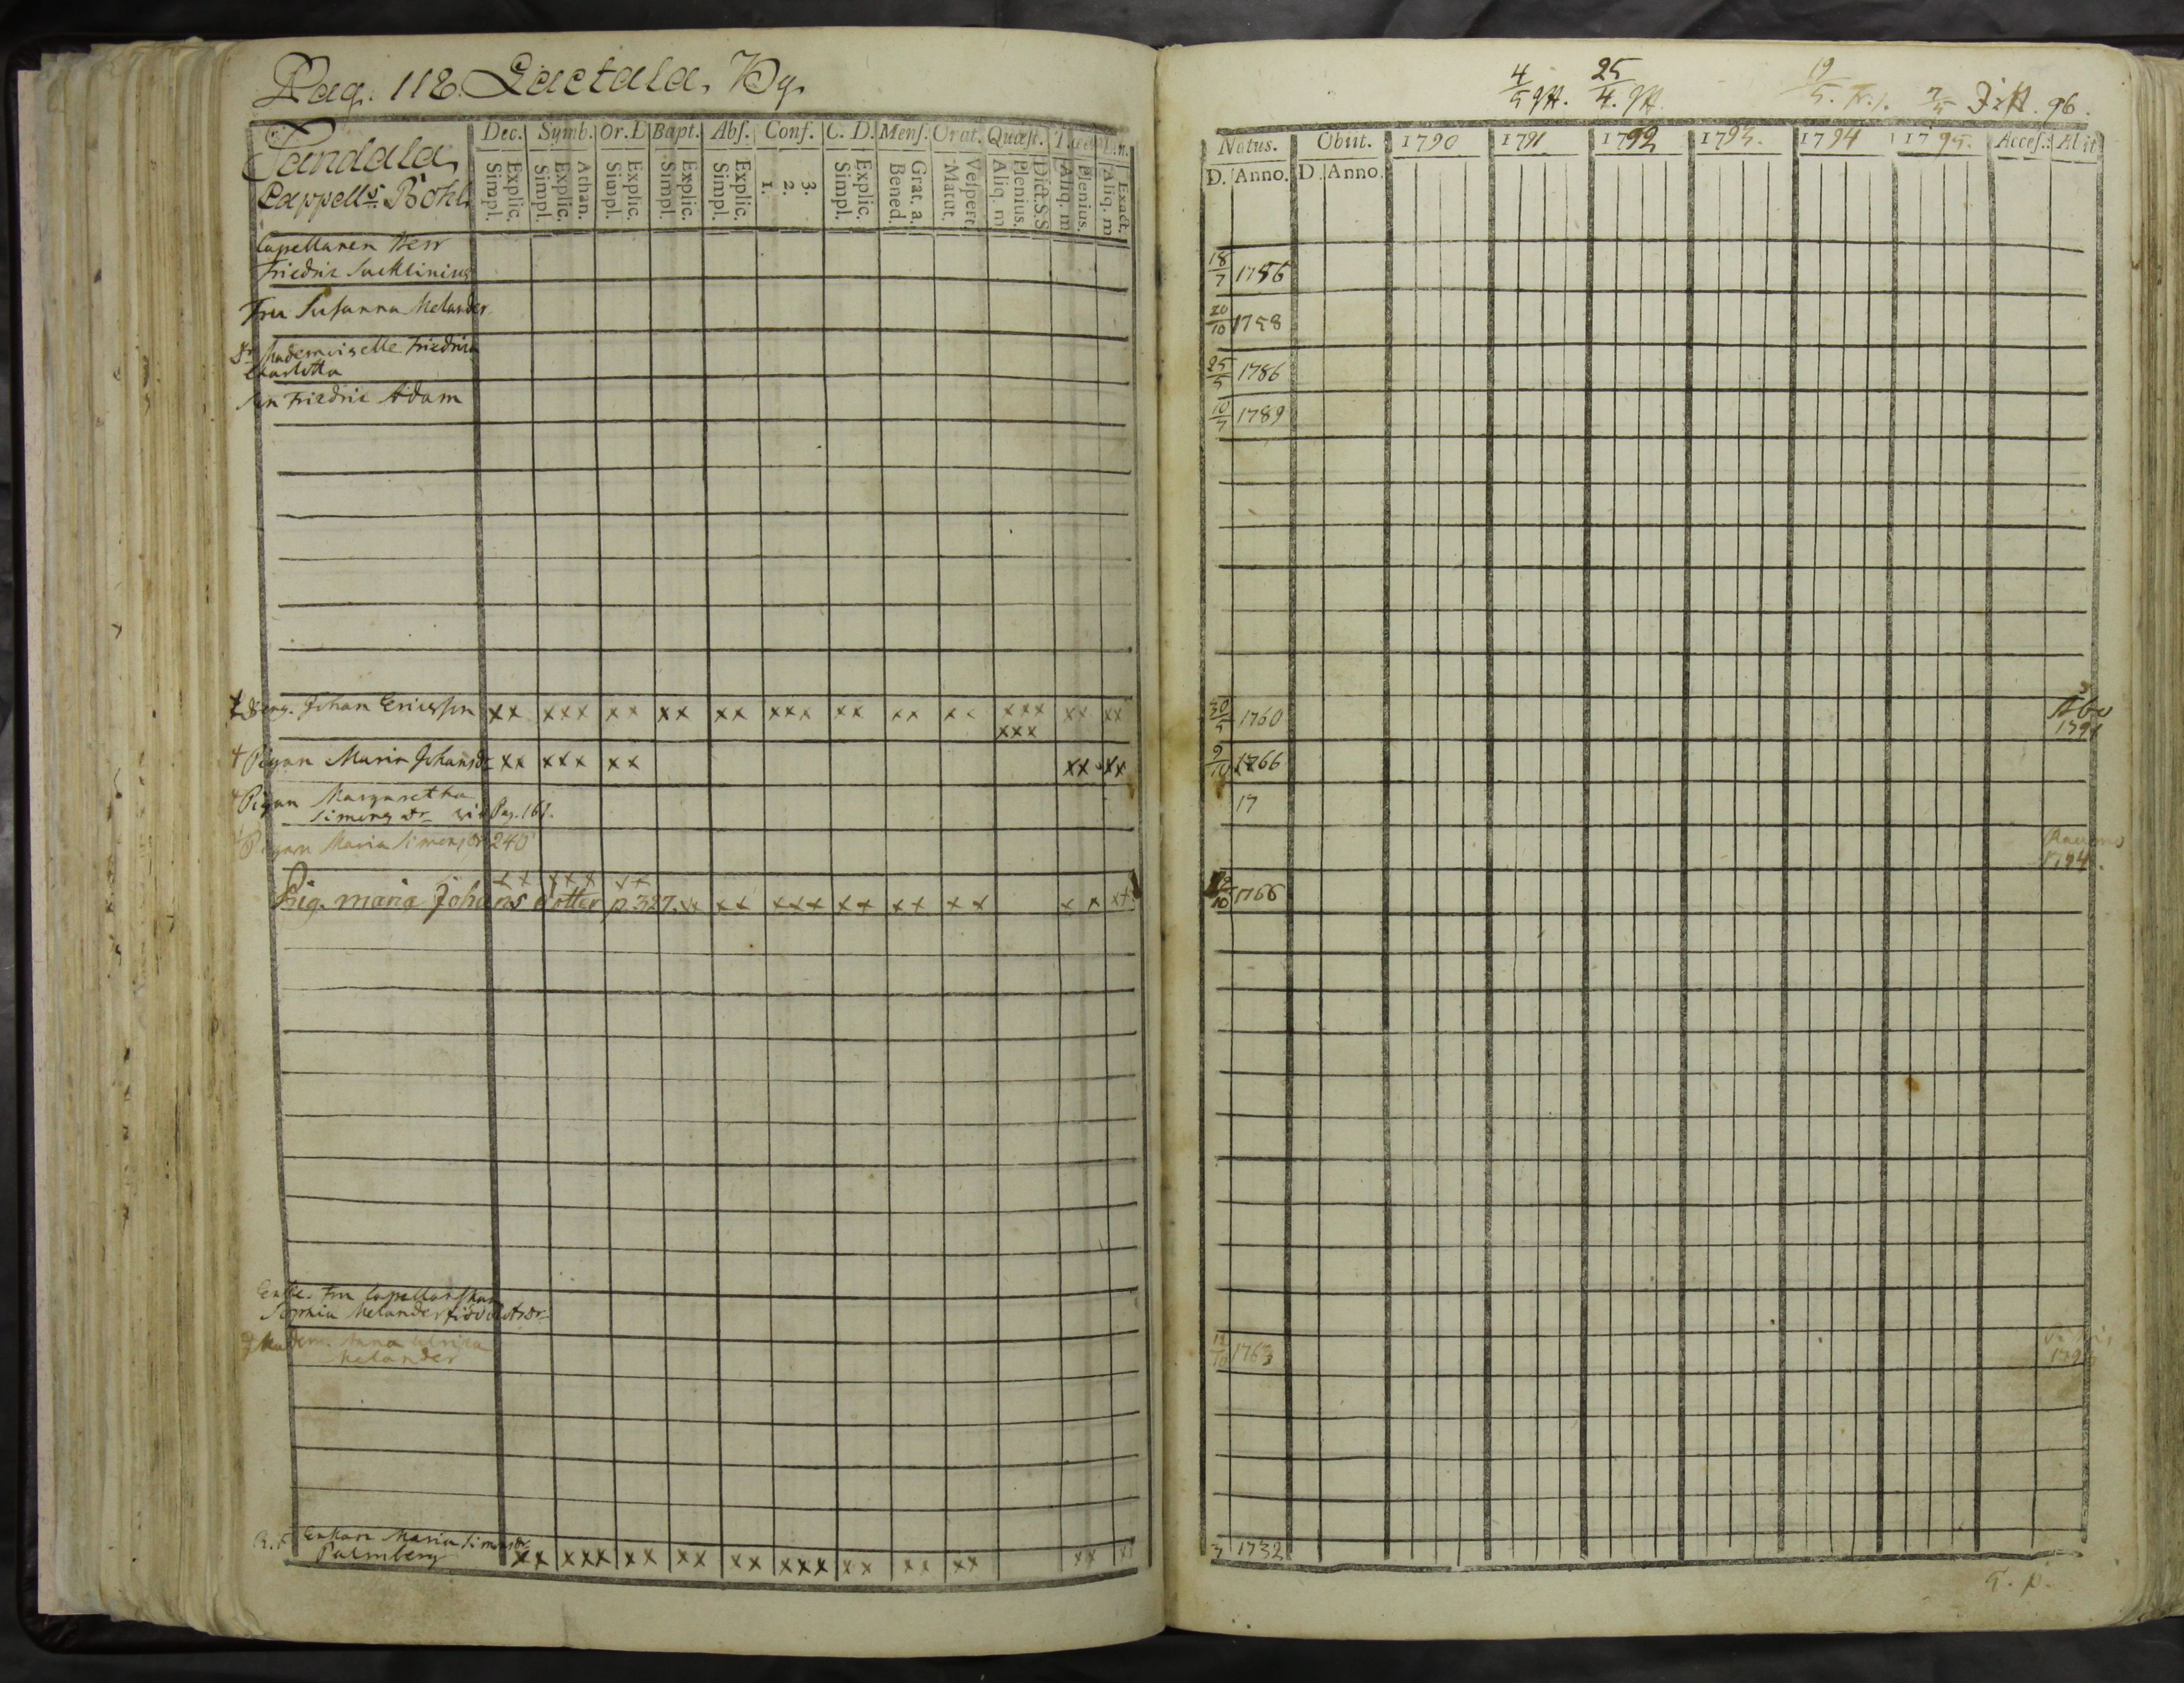 Pag. 118. Lactala. By.
Tandala
Cappells. Böhl
Dec. Symb. Or. D Bapt. Abs. Conf. C. D. Mens. Orat. Quæst.
Simpl. Explic. Simpl. Explic. Athan. Simpl. Explic. Simpl. Explic. Simpl. Explic. 1. 2. 3. Simpl. Explic. Bened. Grat. a. Matut. Vespert. Aliq. m Plenius. Dict.S.S Aliq. m Plenius. Aliq. m Exact.
Capellanen Herr
Friedric
Fru Susanna Melander
Dr Mademoiselle Friedrica
Charlotta
Son Friedric Adam
Dreng. Johan Ericsson xx xxx xx xx xx xxx xx xx xx xxx xx xx
xxx
Pigan Maria Johansdr xx xxx xx xx xx
Pigan Margaretha
Simons dr vid Pag. 161.
Pigan Maria Simonsdr 240
xx xxx xx
Pig. maria Johans dotter p 327. xx xx xxx xx xx xx xx xx
Enke. Fru Capellanskan
Sophia Melander
Madem. Anna Ulrica
Melander
Enkan Maria Simonsdr
Palmberg xx xxx xx xx xx xxx xx xx xx xx xx
4/5 25/4. 19/5. 7/5 96.
Natus. Obiit. 1790 1791 1792 1793. 1794 1795. Acces. Abiit
D. Anno. D. Anno.
18/7 1756
20/10 1758
25/5 1786
10/7 1789
30/5 1760 Åbo
179
9/10 1766
17
Raumo
1794.
10 1766
19/10 1763
3 1732